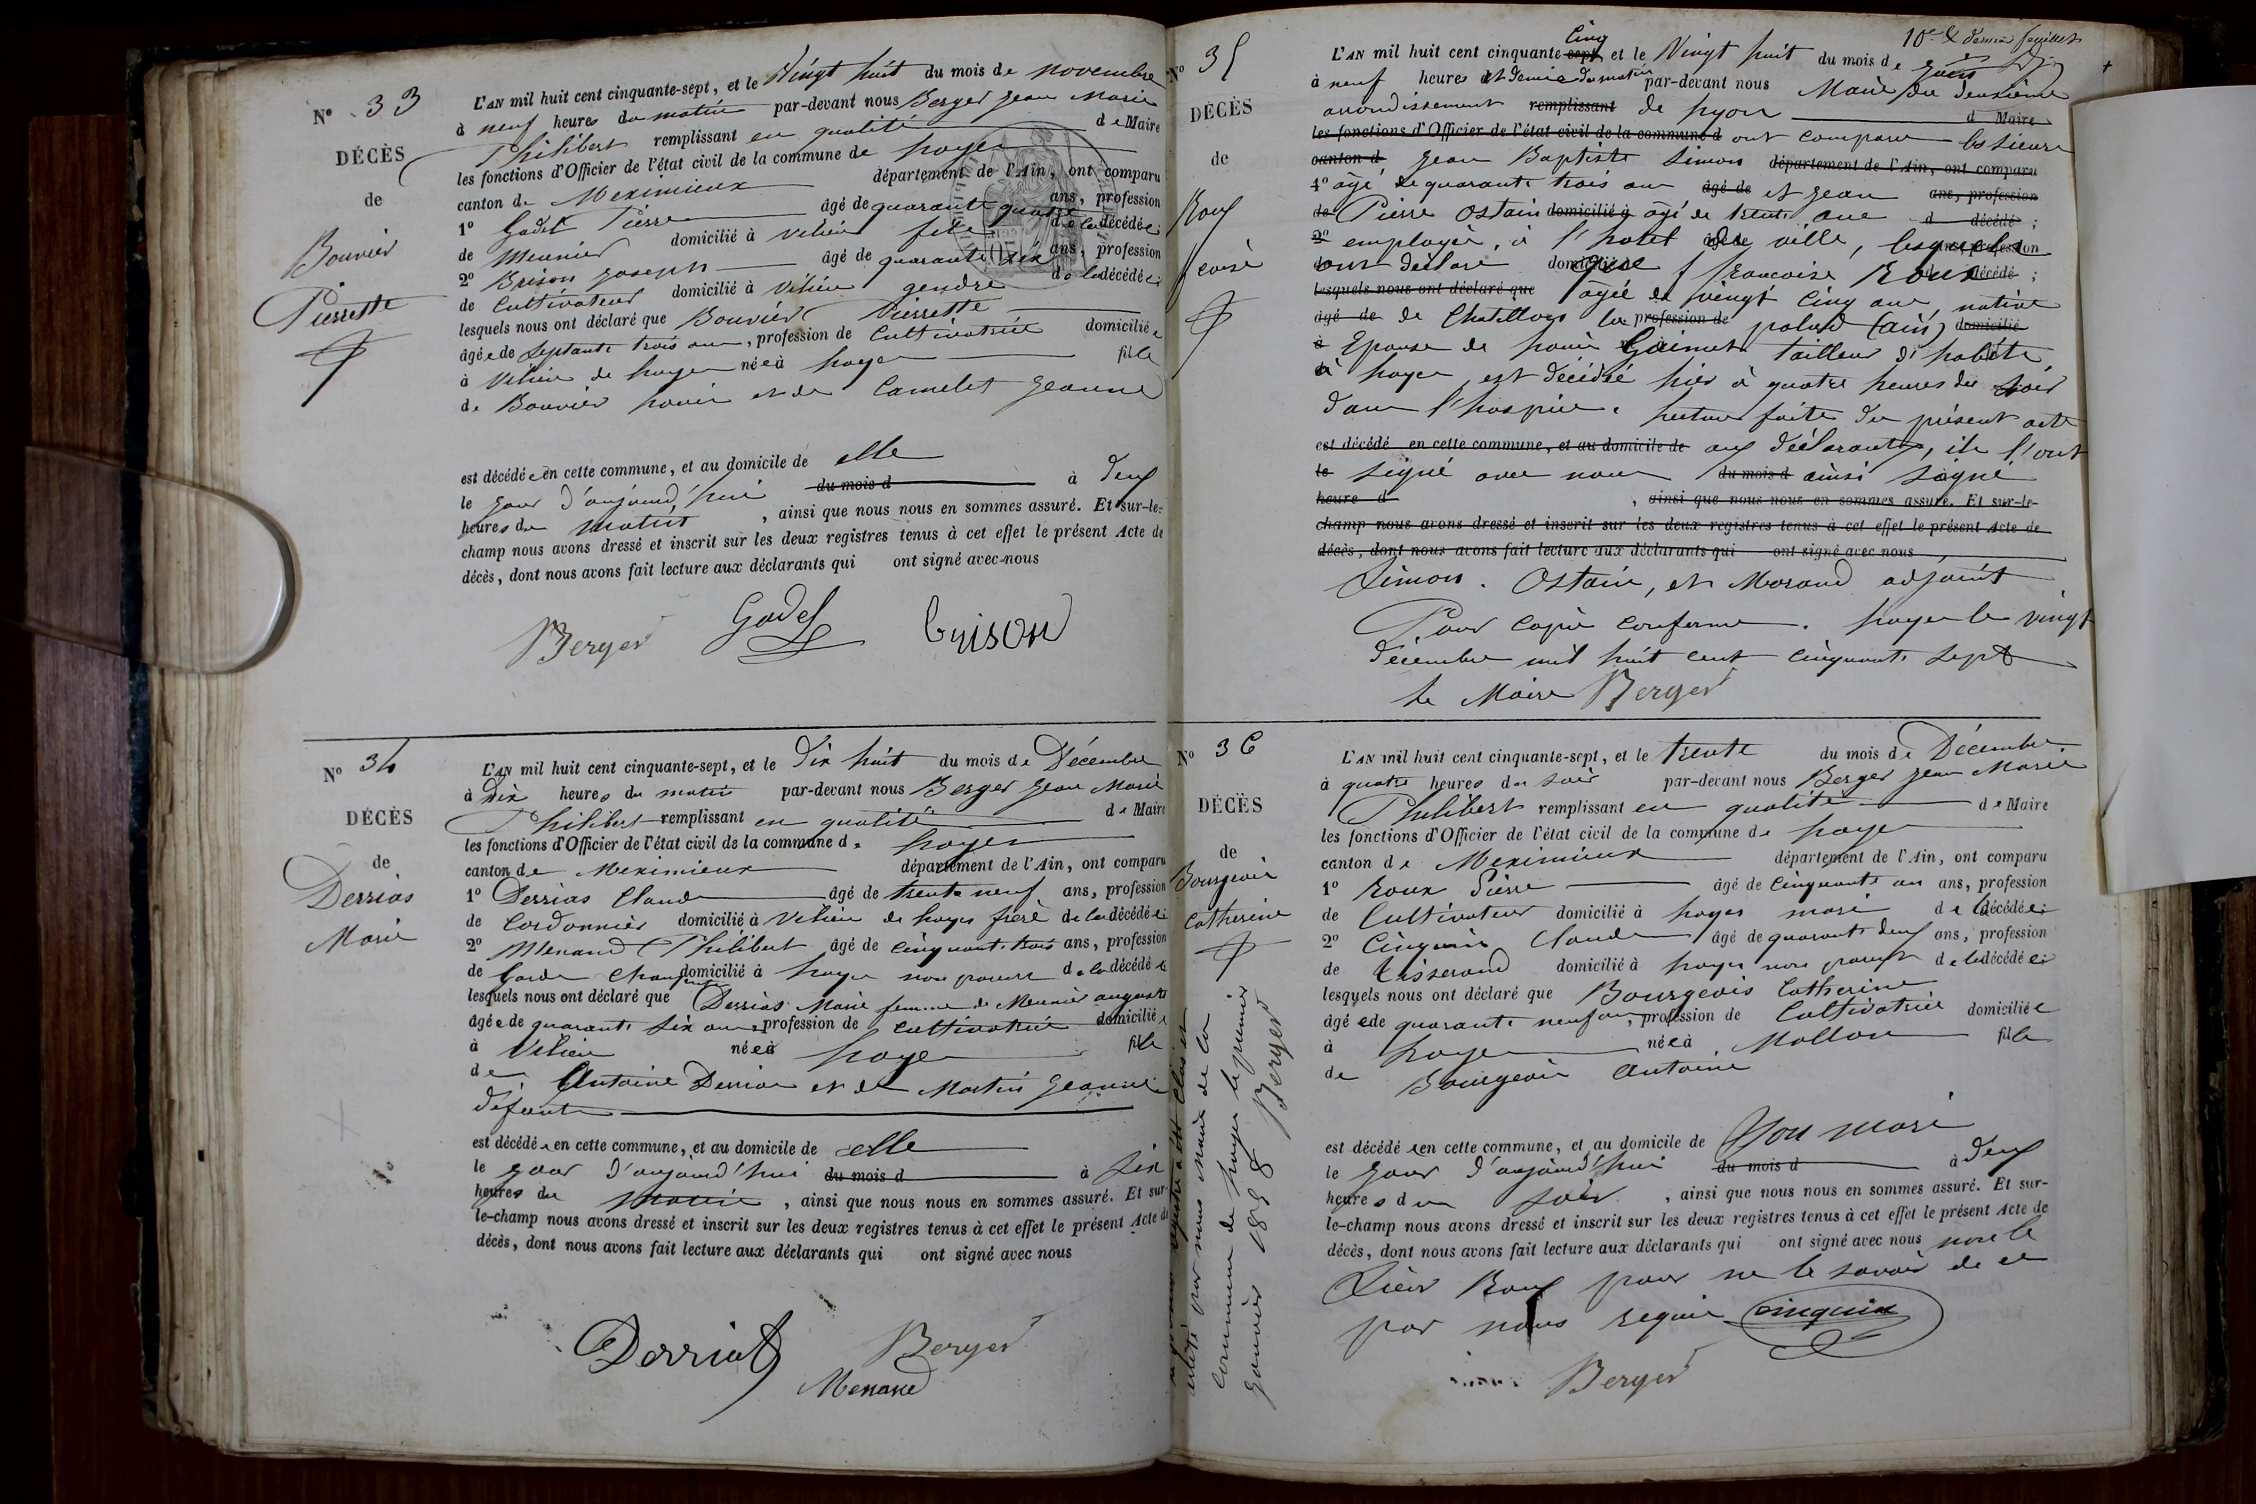 N° 33
DÉCÈS
de
Bouvier
Pierrette
L'AN mil huit cent cinquante-sept, et le Vingt huit du mois de novembre
à neuf heures du matin par-devant nous Berger Jean Marie
Philibert remplissant en qualité de Maire
les fonctions d'Officier de l'état civil de la commune de Loyes
canton de Meximieux département de l'Ain, ont comparu
1° Godet Pierre âgé de quarante quatre ans, profession
de Meunier domicilié à Vilieu fils de la décédée;
2° Brison Joseph âgé de quarante six ans, profession
de Cultivateur domicilié à Vilieu gendre de la décédée;
lesquels nous ont déclaré que Bouvier Pierrette
âgée de septante trois ans, profession de Cultivatrice domiciliée
à Vilieu de Loyes née à Loyes fille
de Bouvier Louis et de Camelet Jeanne
est décédée en cette commune, et au domicile de elle
le jour d'aujourd'hui du mois d à deux
heures du matin, ainsi que nous nous en sommes assuré. Et sur-le-
champ nous avons dressé et inscrit sur les deux registres tenus à cet effet le présent Acte de
décès, dont nous avons fait lecture aux déclarants qui ont signé avec nous
Berger Godet brison
N° 34
DÉCÈS
de
Derrias
Marie
L'AN mil huit cent cinquante-sept, et le Dix huit du mois de Décembre
à Dix heures du matin par-devant nous Berger Jean Marie
Philibert remplissant en qualité de Maire
les fonctions d'Officier de l'état civil de la commune de Loyes
canton de Meximieux département de l'Ain, ont comparu
1° Derrias Claude âgé de trente neuf ans, profession
de Cordonnier domicilié à Vilieu de Loyes frère de la décédée;
2° Menand Philibert âgé de cinquante trois ans, profession
de Garde Champêtre domicilié à Loyes non parent de la décédée
lesquels nous ont déclaré que Derrias Marie femme de Meunier auguste
âgée de quarante six ans profession de Cultivatrice domiciliée
à Vilieu née à Loyes fille
de Antoine Derrias et de Martin Jeanne
défunts
est décédée en cette commune, et au domicile de elle
le jour d'aujourd'hui du mois d à six
heures du matin, ainsi que nous nous en sommes assuré. Et sur-
le-champ nous avons dressé et inscrit sur les deux registres tenus à cet effet le présent Acte de
décès, dont nous avons fait lecture aux déclarants qui ont signé avec nous
Derrias Berger
Menand
10e & dernier feuillet
N° 35
DÉCÈS
de
Roux
L'AN mil huit cent cinquante sept cinq et le Vingt huit du mois de Juin
à neuf heures et demie du matin par-devant nous Maire du deuxième
arrondissement remplissant de Lyon d Maire
les fonctions d'Officier de l'état civil de la commune d ont comparu les sieurs
canton d Jean Baptiste Simon département de l'Ain, ont comparu
1° âgé de quarante trois ans âgé de et Jean ans, profession
de Pierre Ostain domicilié à âgé de trente ans d décédé;
2° employés, à l'hotel âgé de de ville, lesquels ans, profession
de ont déclaré domicilié à que françoise Roux décédé;
lesquels nous ont déclaré que âgée de vingt cinq ans, native
âgé de de Chatillon la profession de palud (ain) domicilié
à Epouse de Louis Guinet tailleur d'habits
à Loyes est décédée hier à quatre heures du soir
dans l'hospice. Lecture faite du présent acte
est décédé en cette commune, et au domicile de aux déclarants, ils l'ont
le signé avec nous du mois d ainsi signé
heure d, ainsi que nous nous en sommes assuré. Et sur-le-
champ nous avons dressé et inscrit sur les deux registres tenus à cet effet le présent Acte de
décès, dont nous avons fait lecture aux déclarants qui ont signé avec nous
Simon. Ostain, et Morand adjoint
Pour copie conforme. Loyes le vingt
décembre mil huit cent cinquante sept
Le Maire Berger
N° 36
DÉCÈS
de
Bourgeois
Catherine
L'AN mil huit cent cinquante-sept, et le trente du mois de Décembre
à quatre heures du soir par-devant nous Berger Jean Marie
Philibert remplissant en qualité de Maire
les fonctions d'Officier de l'état civil de la commune de Loyes
canton de Meximieux département de l'Ain, ont comparu
1° Roux Pierre âgé de cinquante un ans, profession
de Cultivateur domicilié à Loyes mari de la décédée;
2° Cinquin Claude âgé de quarante deux ans, profession
de tisserand domicilié à Loyes non parent de la décédée;
lesquels nous ont déclaré que Bourgeois Catherine
âgée de quarante neuf ans, profession de Cultivatrice domiciliée
à Loyes née à Mollon fille
de Bourgeois Antoine
est décédée en cette commune, et au domicile de son mari
le jour d'aujourd'hui du mois d à deux
heures du soir, ainsi que nous nous en sommes assuré. Et sur-
le-champ nous avons dressé et inscrit sur les deux registres tenus à cet effet le présent Acte de
décès, dont nous avons fait lecture aux déclarants qui ont signé avec nous non le
Sieur Roux pour ne le savoir de ce
par nous requis cinquin
Berger
arrêté par nous maire de la
commune de Loyes le premier
Janvier 1858 Berger